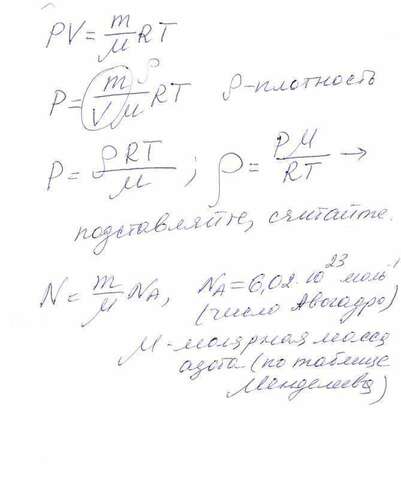 PV = m/μ RT
P = m/V μ RT ρ ρ-плотность
P = ρRT/μ ; ρ = PM/RT →
подставляйте, считайте.
N = m/μ NA, NA = 6,02·10²³ моль⁻¹
(число Авогадро)
M - молярная масса
азота (по таблице
Менделеева)